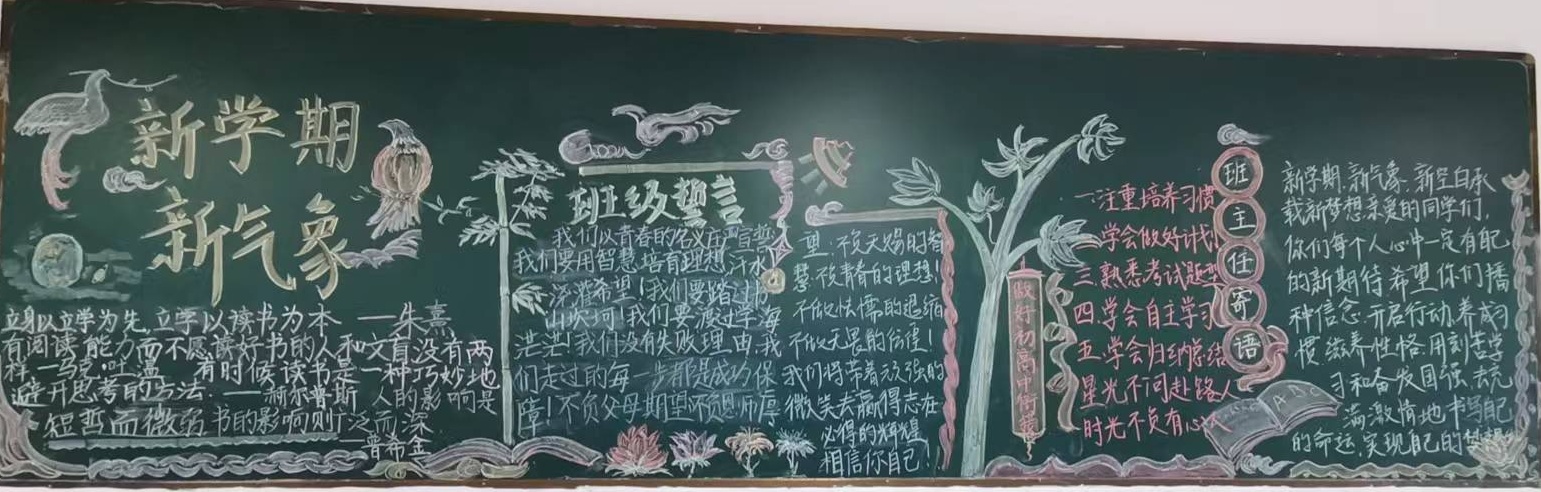 新学期
新气象
立身以立学为先,立学以读书为本 ——朱熹
有阅读能力而不愿读好书的人和文盲没有两
样 ——马克·吐温 有时候读书是一种巧妙地
避开思考的方法 ——赫尔普斯 人的影响是
短暂而微弱 书的影响则广泛而深
——普希金
班级誓言
我们以青春的名义庄严宣誓
我们要用智慧培育理想,汗水
浇灌希望!我们要踏过书
山坎坷!我们要渡过学海
茫茫!我们没有失败理由,我
们走过的每一步都是成功保
障!不负父母期望不负恩师厚
望,不负天赐的智
慧,不负青春的理想!
不做怯懦的退缩
不做无畏的彷徨!
我们将带着顽强的
微笑去赢得志在
必得的辉煌
相信你自己!
做好初高中衔接
一.注重培养习惯
学会做好计划
三.熟悉考试题型
四.学会自主学习
五.学会归纳总结
星光不问赶路人
时光不负有心人
班主任寄语
新学期,新气象,新空白承
载新梦想亲爱的同学们,
你们每个人心中一定有自己
的新期待希望你们播
种信念,开启行动,养成习
惯,滋养性格,用刻苦学
习和奋发图强,去充
满激情地书写自己
的命运,实现自己的梦想